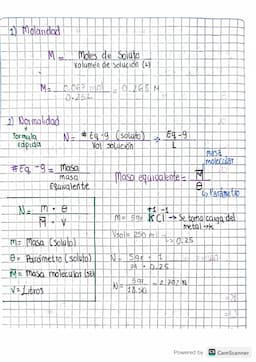 1) Molaridad
M = Moles de Soluto
Volumen de solución (L)
M = 0.067 mol = 0.268 M
0.25L
2) Normalidad
Formula rápida
N = # Eq-g (soluto) Eq-g
Vol solución L
# Eq-g = masa
masa equivalente
masa molecular
Masa equivalente = M
θ
Parámetro
N = m · θ
M · V
m = Masa (soluto)
θ = Parámetro (soluto)
M = masa molecular
V = Litros
M = 5gr KCl → Se toma carga del metal → K
+1 -1
Vsol = 250 ml
→ 0.25
N = 5gr · 1
M · 0.25
N =
Powered by CamScanner